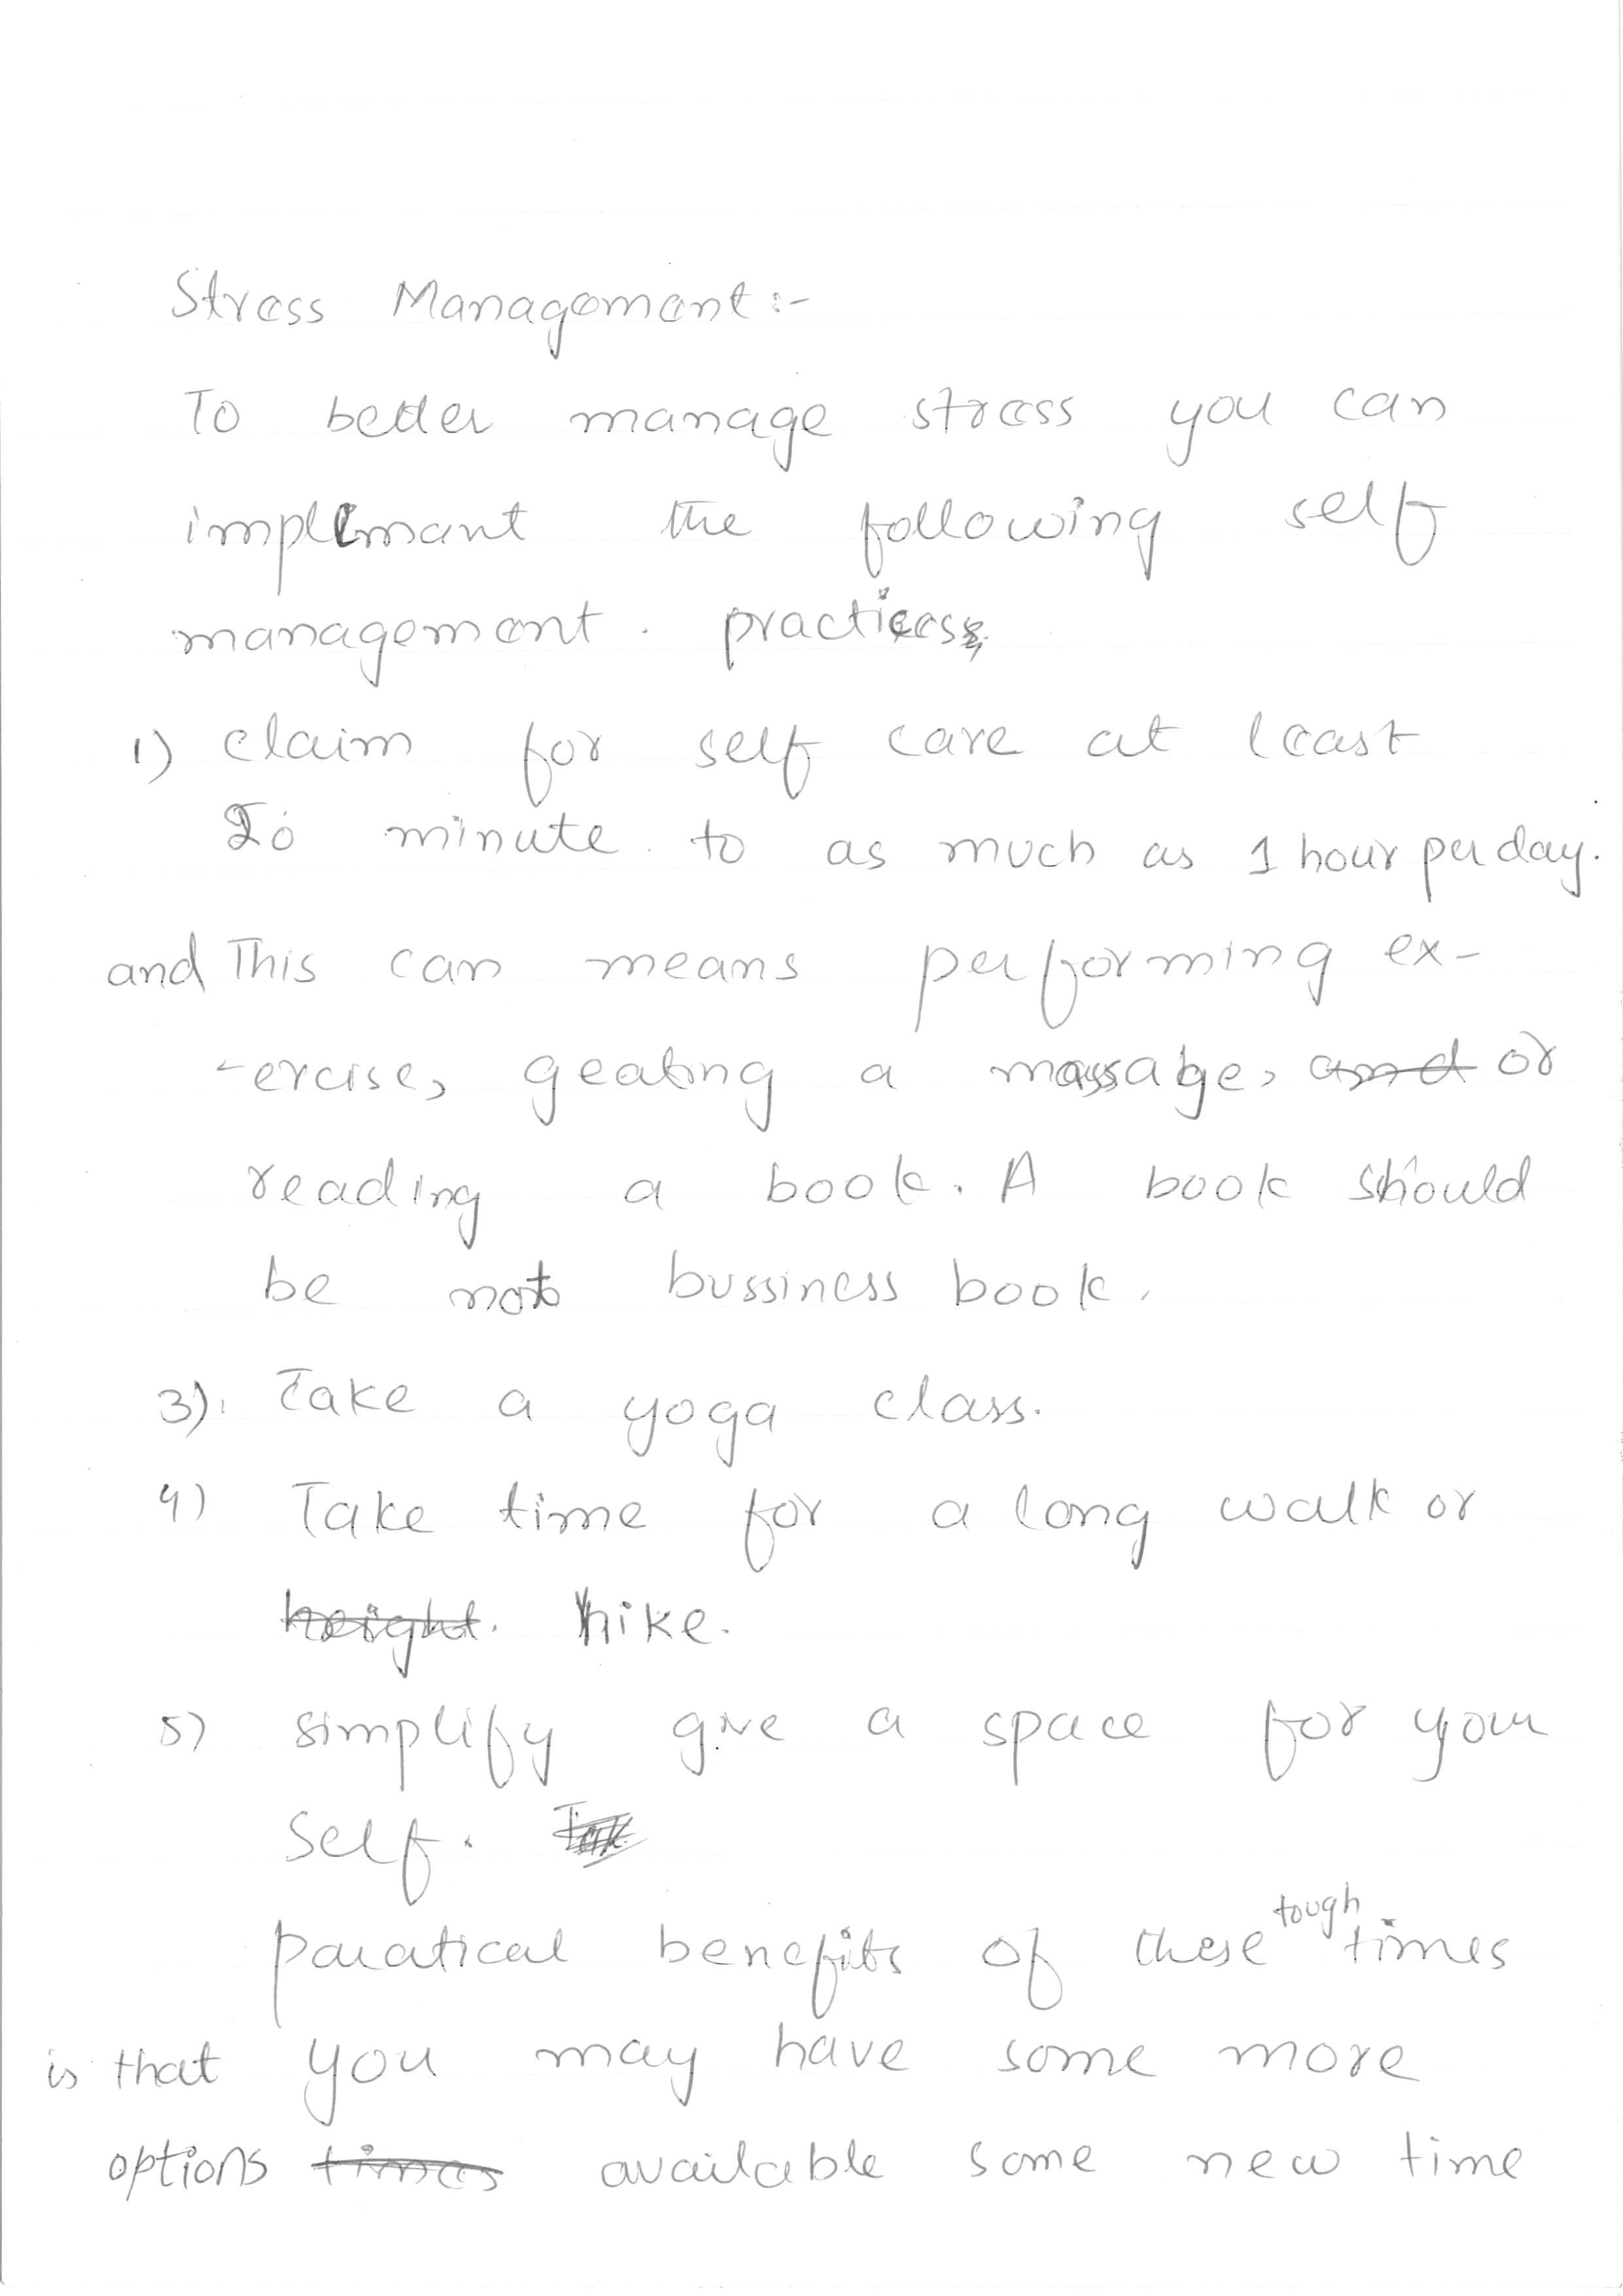 Stress Management:-
To better manage stress you can
implement the following self
management. practices,
1) claim for self care at least
minute to as much as 1 hour per day.
and This can means performing ex-
-ercise, geating a massage, ~~and~~ or
reading a book. A book should
be not bussiness book.
3). Take a yoga class.
4) Take time for a long walk or
~~height~~. hike.
5) simplify give a space for your
self.
paratical benefits of these tough times
is that you may have some more
options ~~times~~ available some new time